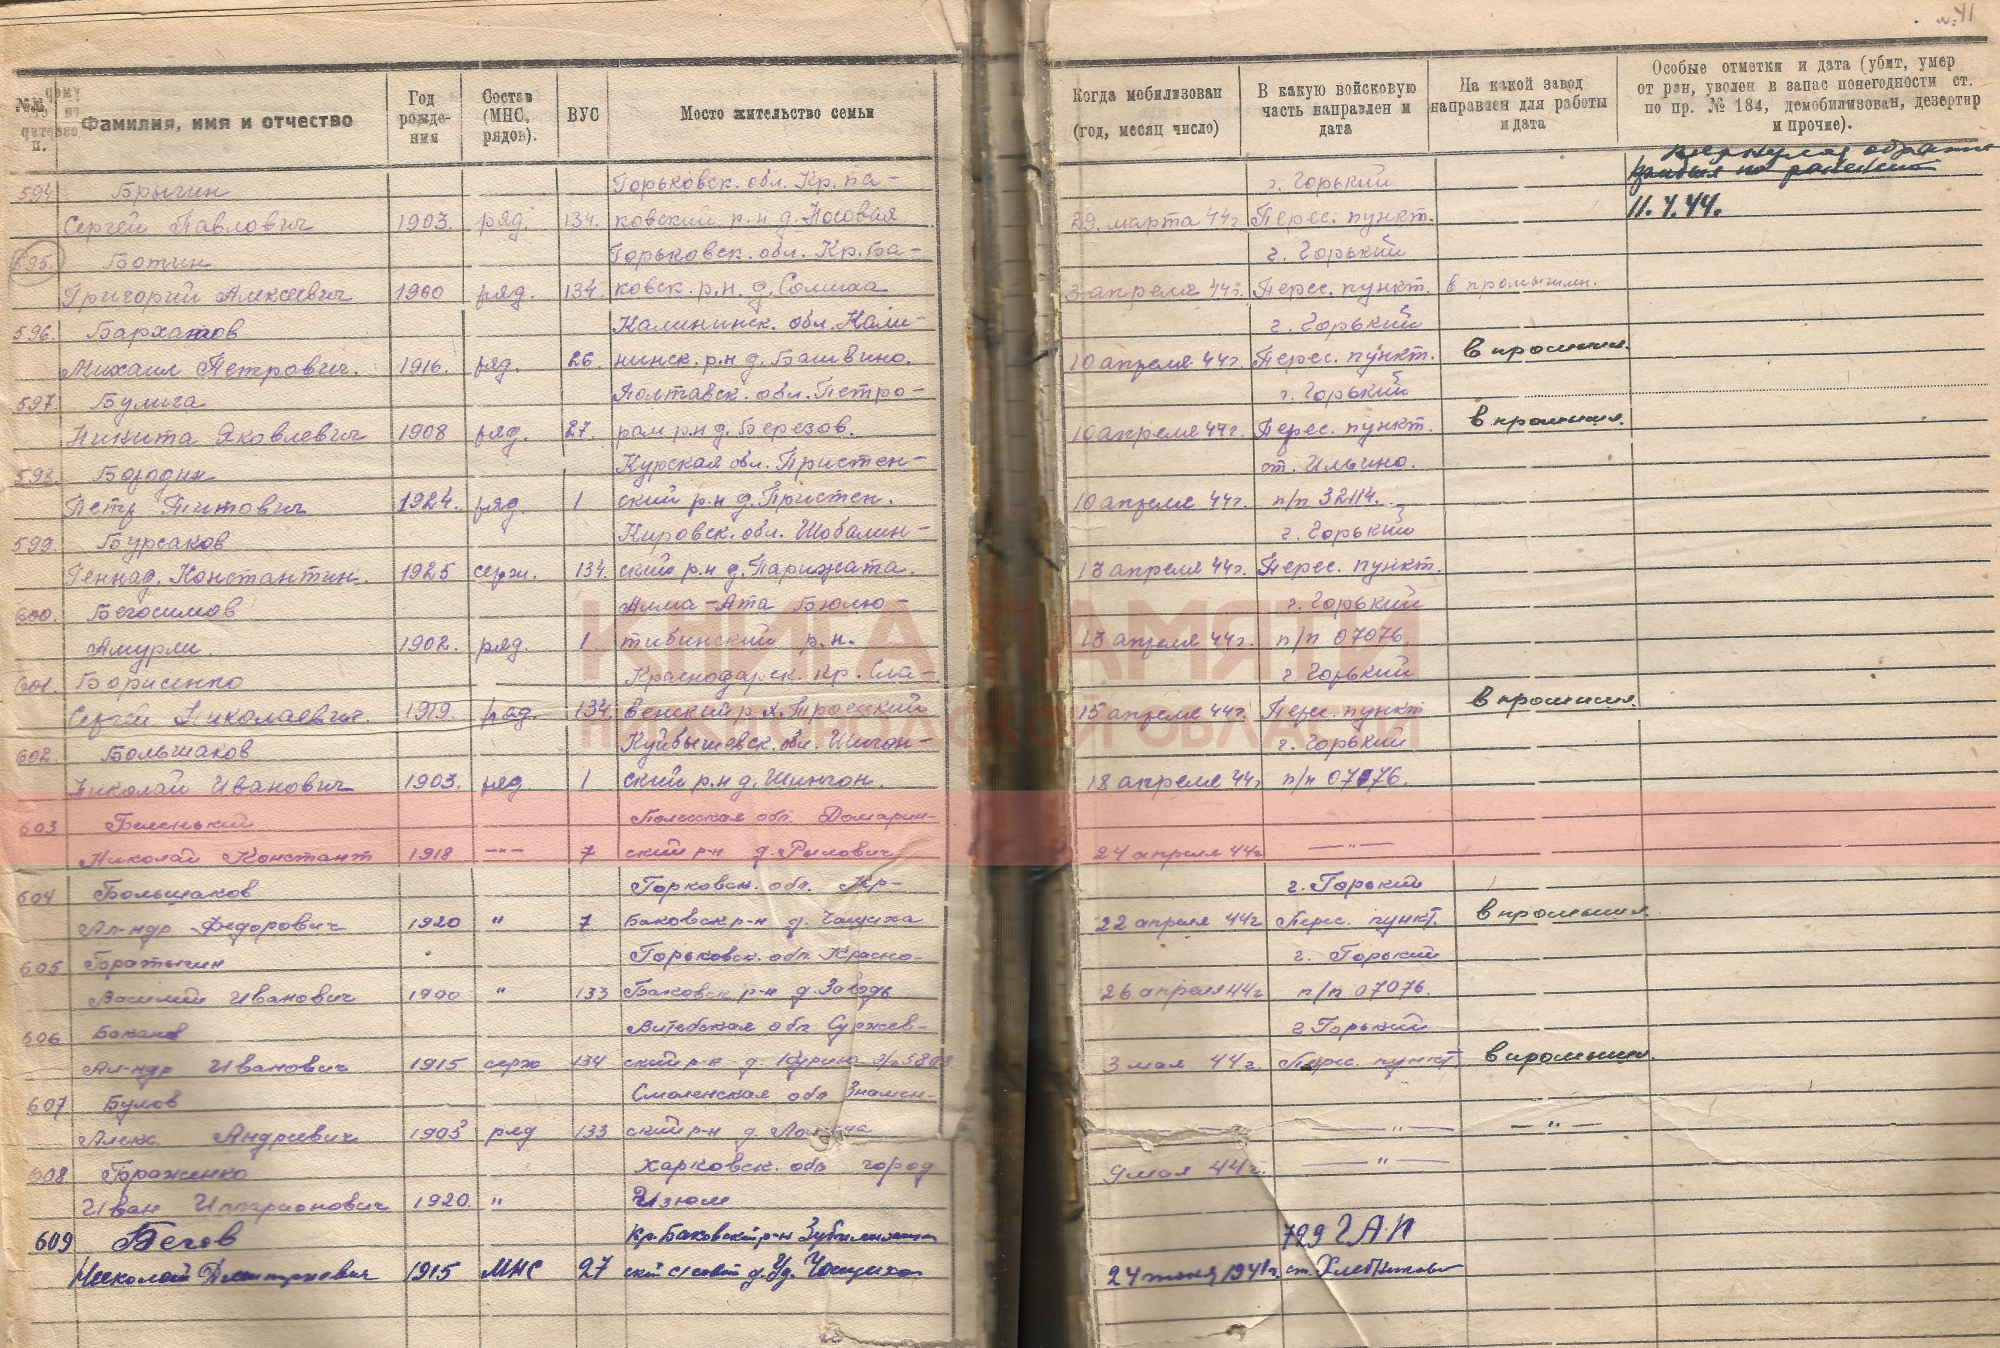 № 41
Фамилия, имя и отчество
Год рожде-ния
Состав (МНС, рядов).
ВУС
Мосто жительство семьи
Когда мобилизован (год, месяц число)
В какую войсковую часть направлен и дата
На какой завод направлен для работы и дата
Особые отметки и дата (убит, умер от ран, уволен в запас понегодности ст. по пр. № 184, демобилизован, дезертир и прочие).
594 Брыгин Горьковск. обл. Кр. Ба- г. Горький вернулся обратно
Сергей Павлович 1903. ряд. 134. ковский р.н д. Носовая 29. марта 44г. Перес. пункт. 11.4.44.
595. Ботин Горьковск. обл. Кр. Ба- г. Горький
Григорий Алексеевич 1900 ряд. 134 ковск. р.н. д. Солиха 3 апреля 44г. Перес. пункт. в промышлн.
596. Бархатов Калининск. обл. Кали- г. Горький
Михаил Петрович. 1916. ряд. 26 нинск. р.н д. Башвино. 10 апреля 44г. Перес. пункт. в промышл.
597 Булига Полтавск. обл. Петро- г. Горький
Никита Яковлевич 1908 ряд. 27. рам р.н д. Березов. 10 апреля 44г. Перес. пункт. в промышл.
598. Бородин Курская обл. Пристен- ст. Ильино.
Петр Титович 1924. ряд. 1 ский р.н д. Пристен. 10 апреля 44г. п/п 32114.
599. Бурсаков Кировск. обл. Шабалин- г. Горький
Геннад. Константин. 1925 серж. 134. ский р.н д. Парижата. 13 апреля 44г. Перес. пункт.
600. Бегосимов Алма-Ата Бюлю- г. Горький
Амурли. 1902. ряд. 1. тибинский р.н. 13 апреля 44г. п/п 07076.
601. Борисенко Краснодарск. кр. Сла- г. Горький
Сергей Николаевич. 1919. ряд. 134. венский р. х. Троецкий 15 апреля 44г. Перес. пункт в промышл.
КНИГА ПАМЯТИ
НИЖЕГОРОДСКОЙ ОБЛАСТИ
602. Большаков Куйбышевск. обл. Шигон- г. Горький
Николай Иванович 1903. ряд 1 ский р.н д. Шингон. 18 апреля 44г п/п 07076.
603 Беленький Полесская обл. Домарин-
Николай Констант 1918 —"— 7 ский р-н д. Рылович 24 апреля 44г —"—
604 Большаков Горковск. обл. Кр- г. Горький
Ал-ндр Федорович 1920 " 7 Баковск р-н д. Чащиха 22 апреля 44г Перес. пункт. в промышл.
605 Братыгин Горьковск. обл. Красно- г. Горький
Василий Иванович 1900 " 133 Баковск р-н д. Заводь 26 апреля 44г п/п 07076.
606 Баканов Витебская обл Суржев- г Горький
Ал-ндр Иванович 1915 серж 134 ский р-н д. 3 мая 44г. Перес. пункт в промышл.
607 Булов Смоленская обл Знамен-
Алекс. Андреевич 1905 ряд 133 ский р-н д. —"— —"—
608 Бораженко Харковск. обл город 9 мая 44г. —"—
Иван Илларионович 1920. " Изюм
609 Бегов Кр. Баковский р-н Зубилихин 729 ГАП
Николай Дмитриевич 1915 МНС 27 ский с/совет д. Уд. Чащиха 24 июня 1941г. ст. Хлебниково